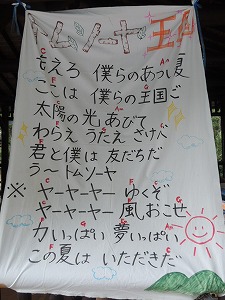 トムソーヤ王国
もえろ 僕らのあつい夏
ここは 僕らの王国で
太陽の光あびて
わらえ うたえ さけべ
君と僕は 友だちだ
う〜 トムソーヤ
※ ヤーヤーヤー ゆくぞ
ヤーヤーヤー 風おこせ
力いっぱい 夢いっぱい
この夏は いただきだ